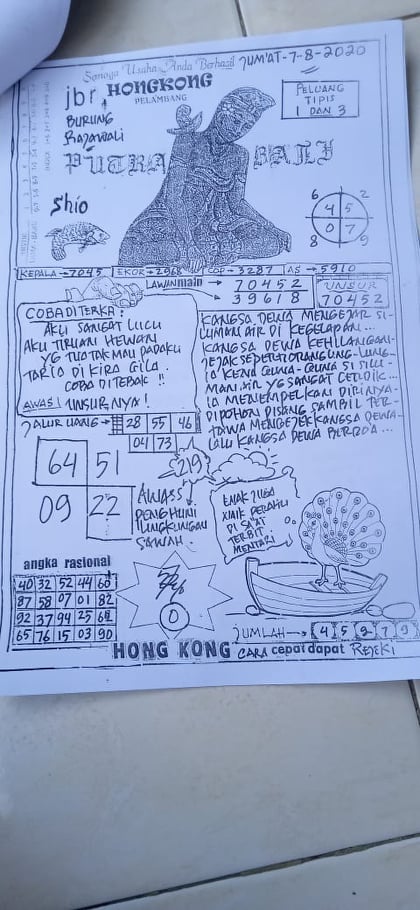 Semoga Usaha Anda Berhasil
JUM'AT-7-8-2020
jbr HONGKONG
PELAMBANG
PELUANG
TIPIS
1 DAN 3
BURUNG
RAJAWALI
PUTRA BALI
Shio
6 2
4 5
0 7
8 9
KEPALA→7045 EKOR→2968 COP→3287 AS→5910
LAWAN main → 70452
→ 39618
UNSUR
70452
COBA DITERKA:
AKU SANGAT LUCU
AKU TIRUAN HEWAN
YG TUA TAK MAU PADAKU
TARIO DI KIRA GILA.
COBA DITEBAK!!
AWAS! UNSURNYA!
KANGSA DEWA MENGEJAR SI-
LUMAN AIR DI KEGELAPAN...
KANGSA DEWA KEHILANGAN-
JEJAK SEPERTI ORANG LING-LUNG-
IA KENA GUNA-GUNA SI SILU-
MAN AIR YG SANGAT CERDIK...
IA MENEMPELKAN DIRINYA-
DIPOHON PISANG SAMBIL TER-
TAWA MENGEJEK KANGSA DEWA-
LALU KANGSA DEWA
JALUR UANG→ 28 55 46
04 73
219
64 51
09 22
AWASS
PENGHUNI
LINGKUNGAN
SAWAH.
ENAK JUGA
NAIK PERAHU
DI SAAT
TERBIT
MENTARI
angka rasional
40 32 52 44 60
87 58 07 01 82
92 37 94 25 64
65 76 15 03 90
0
JUMLAH→ 4 5 2 7 9
HONG KONG CARA cepat dapat REJEKI